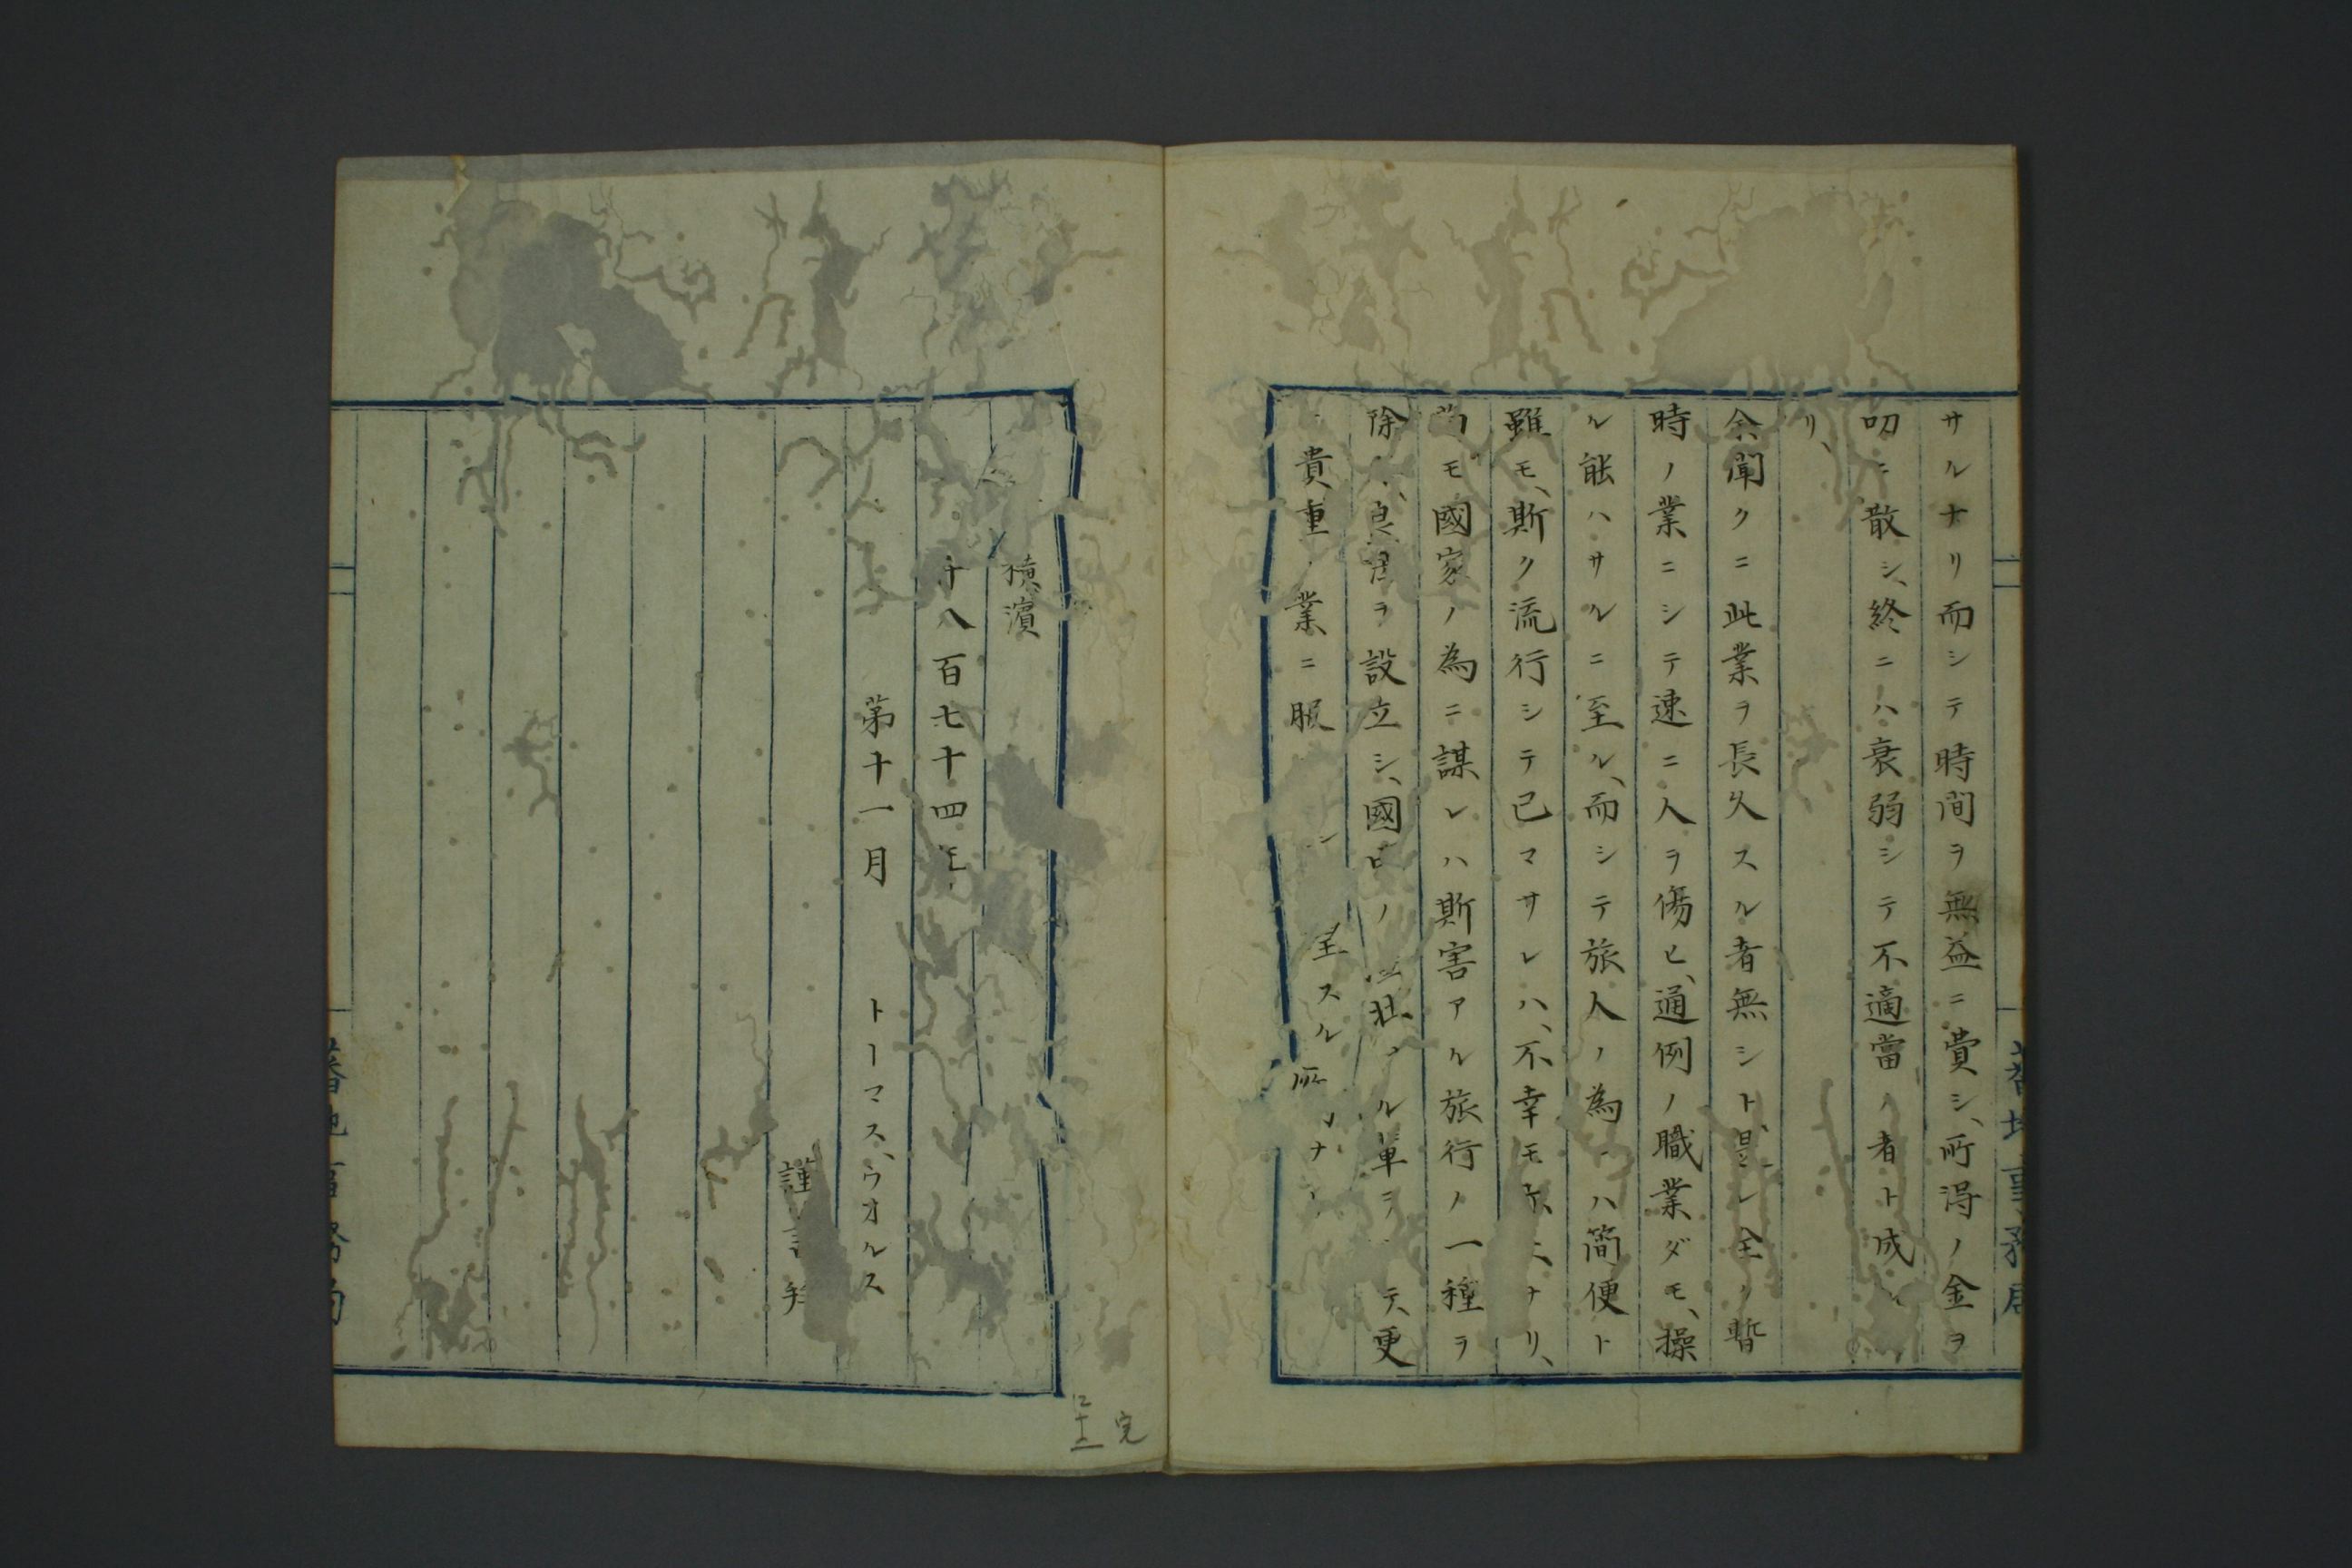 サルナリ而シテ時間ヲ無益ニ費シ、所得ノ金ヲ
叨ニ散シ、終ニハ衰弱シテ不適當ノ者ト成
リ、
余聞クニ此業ヲ長久スル者無シト、是レ全ク暫
時ノ業ニシテ速ニ人ヲ傷ヒ、通例ノ職業ダモ、操
ル能ハサルニ至ル、而シテ旅人ノ為ハ簡便ト
雖モ、斯ク流行シテ已マサレハ、不幸モナリ、
モ國家ノ為ニ謀レハ斯害アル旅行ノ一種ヲ
除ヲ設立シ、國ノ壯ル車テ、更
貴重業ニ服シ スル所ナ
橫濱
千八百七十四
第十一月
トーマス、ウオルス
謹言
蕃地事務局
完